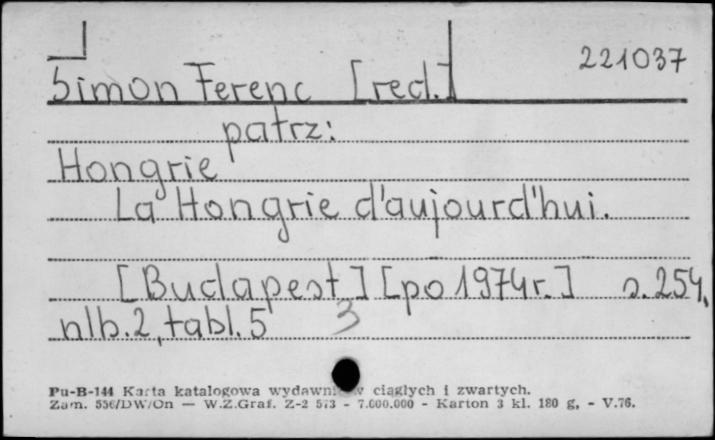 221037
Simon Ferenc [red.]
patrz:
Hongrie
La Hongrie d'aujourd'hui.
[Budapest] [po 1974r.] s. 254,
nlb. 2, tabl. 5 3
Pu-B-144 Karta katalogowa ciągłych i zwartych.
Zam. 556/DW/On — W.Z.Graf. Z-2 573 - 7.000.000 - Karton 3 kl. 180 g, - V.76.